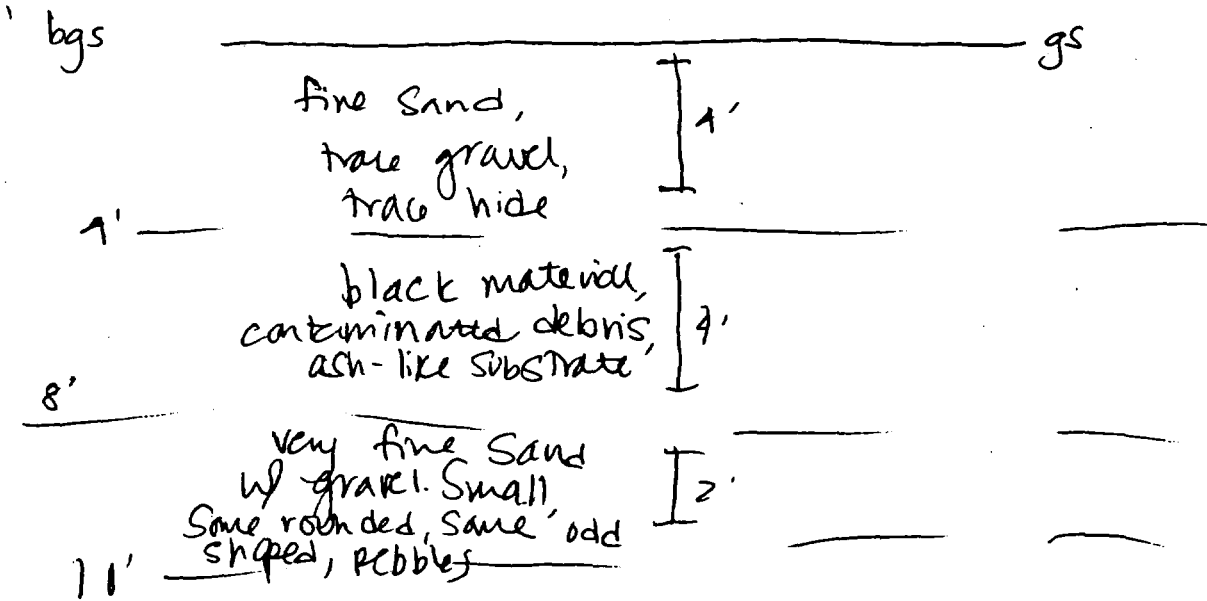 ' bgs
gs
fine sand,
trace gravel,
trace hide
4'
4'
black material,
contaminated debris,
ash-like substrate
4'
8'
very fine sand
w/ gravel. Small,
Some rounded, some odd
shaped, pebbles
2'
11'